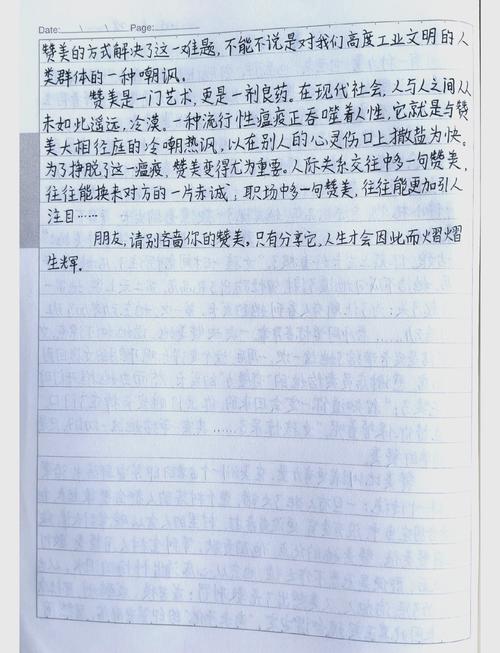 Date: Page:
赞美的方式解决了这一难题,不能不说是对我们高度工业文明的人
类群体的一种嘲讽。
赞美是一门艺术,更是一剂良药。在现代社会,人与人之间从
未如此遥远,冷漠。一种流行性瘟疫正吞噬着人性,它就是与赞
美大相径庭的冷嘲热讽,以在别人的心灵伤口上撒盐为快。
为了挣脱了这一瘟疫,赞美变得尤为重要。人际关系交往中多一句赞美,
往往能换来对方的一片赤诚;职场中多一句赞美,往往能更加引人
注目……
朋友,请别吝啬你的赞美,只有分享它,人生才会因此而熠熠
生辉。